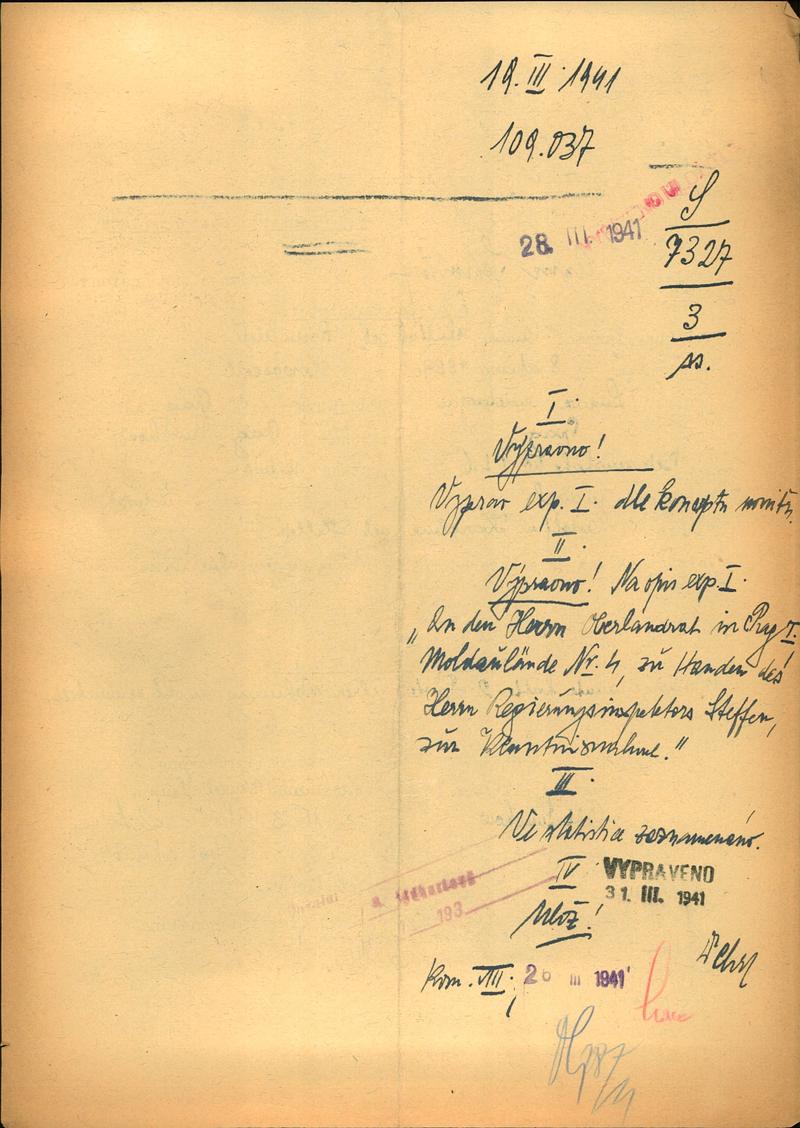 19. III. 1941
109.037
28. III. 1941
S
7327
3
ss.
I.
Výpravno!
Vyprav exp. I. dle konceptu uvnitř.
II
Výpravno! Na opis exp. I.
„An den Herrn Oberlandrat in Prag I.
Moldaulände Nr. 4, zu Handen des
Herrn Regierungsinspektors Steffen,
zur Kenntnisnahme."
III.
Ve statistice zaznamenáno.
IV
VYPRAVENO
31. III. 1941
193
Ulož!
Kom. VIII.; 26 III 1941